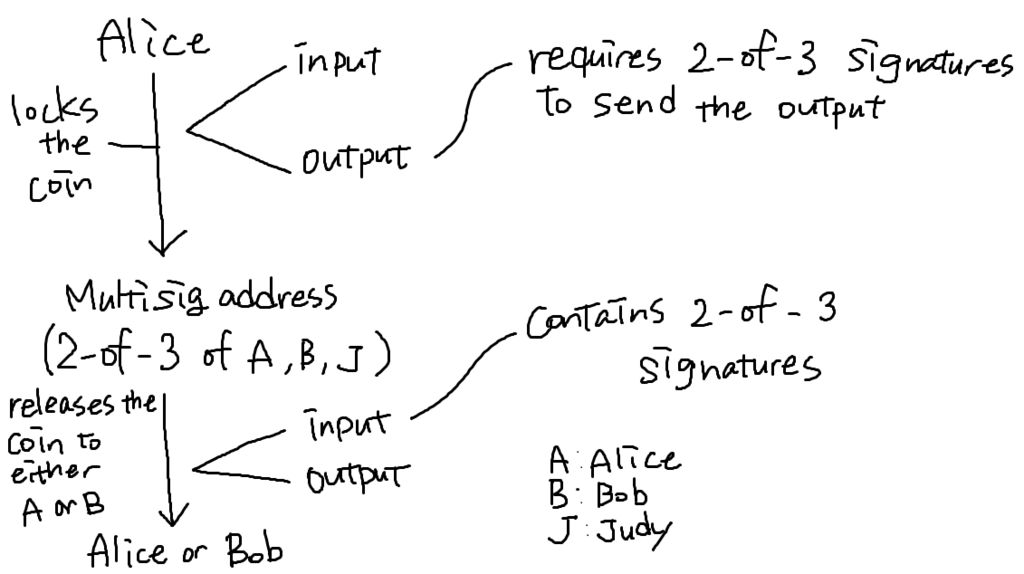 Alice
locks
the
coin
input
output
requires 2-of-3 signatures
to send the output
Multisig address
(2-of-3 of A, B, J)
releases the
coin to
either
A or B
input
output
contains 2-of-3
signatures
Alice or Bob
A: Alice
B: Bob
J: Judy